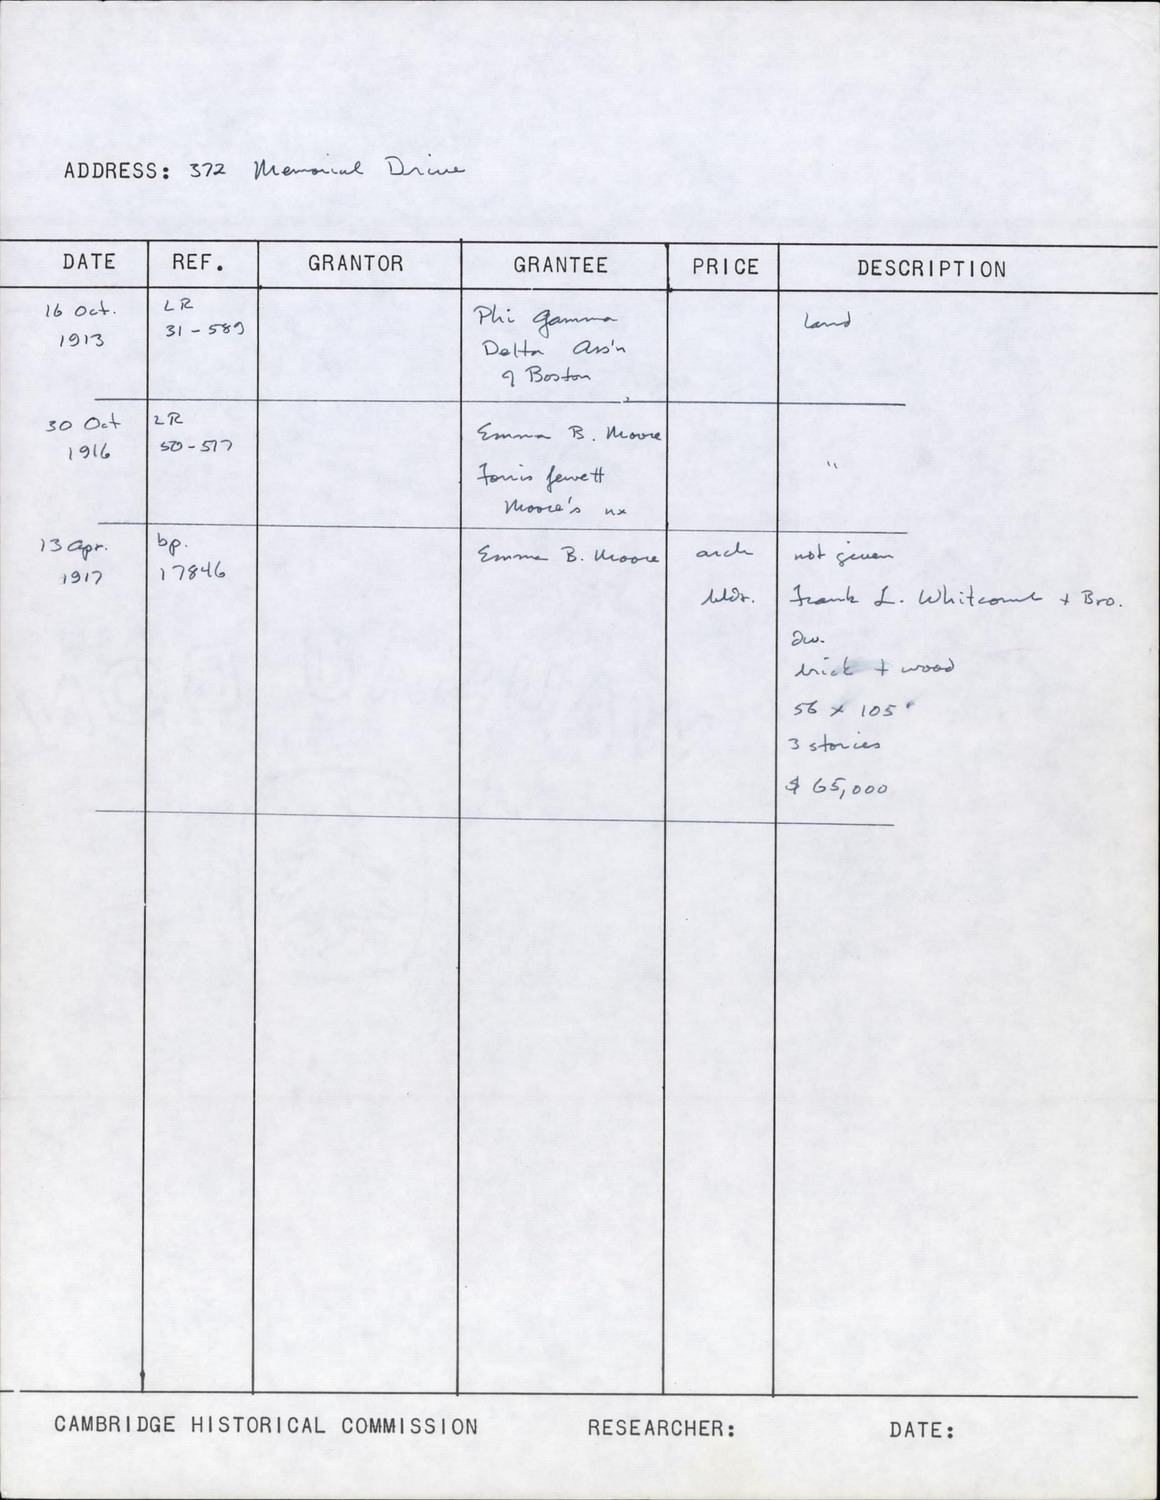 ADDRESS: 372 Memorial Drive
DATE REF. GRANTOR GRANTEE PRICE DESCRIPTION
16 Oct.
1913
LR
31-589
Phi Gamma
Delta Ass'n
of Boston
land
30 Oct
1916
LR
50-517
Emma B. Moore
Forris Jewett
Moore's ux
"
13 Apr.
1917
bp.
17846
Emma B. Moore
arch not given
bldr. Frank L. Whitcomb + Bro.
dw.
brick + wood
56 x 105'
3 stories
$65,000
CAMBRIDGE HISTORICAL COMMISSION RESEARCHER: DATE: